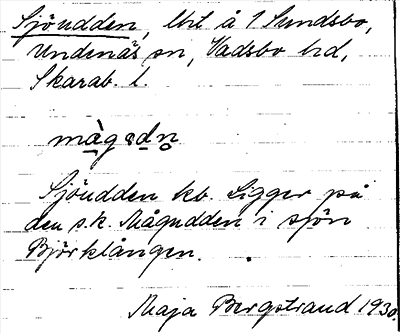 Sjöudden, lht å 1 Sundsbo,
Undenäs sn, Vadsbo hd,
Skarab. l.
Sjöudden kb. Ligger på
den s.k. Mågudden i sjön
Björklången.
Maja Bergstrand 1930.